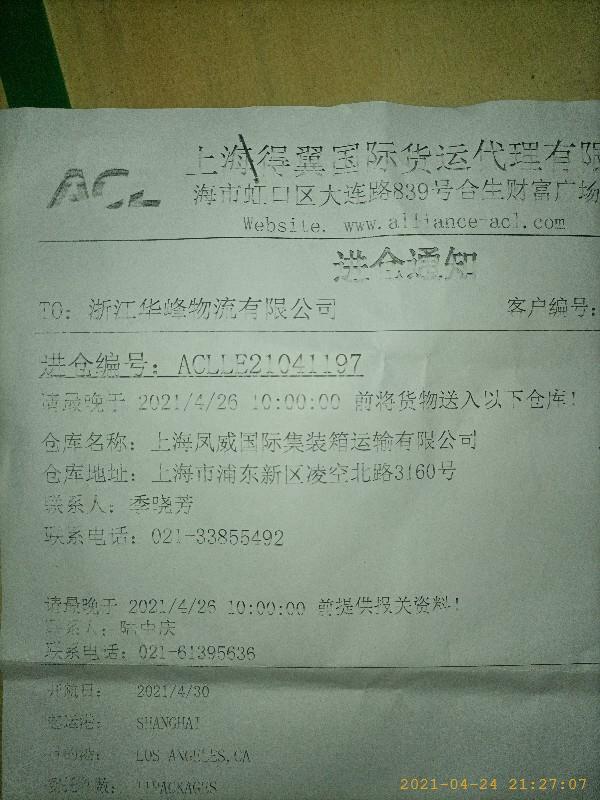 ACL
上海得翼国际货运代理有限
海市虹口区大连路839号合生财富广场
Website. www.alliance-acl.com
进仓通知
TO: 浙江华峰物流有限公司 客户编号:
进仓编号: ACLLE21041197
请最晚于 2021/4/26 10:00:00 前将货物送入以下仓库!
仓库名称: 上海凤威国际集装箱运输有限公司
仓库地址: 上海市浦东新区凌空北路3160号
联系人: 季晓芳
联系电话: 021-33855492
请最晚于 2021/4/26 10:00:00 前提供报关资料!
联系人: 陆中庆
联系电话: 021-61395636
开航日: 2021/4/30
起运港: SHANGHAI
目的港: LOS ANGELES,CA
件数: 11PACKAGES
2021-04-24 21:27:07